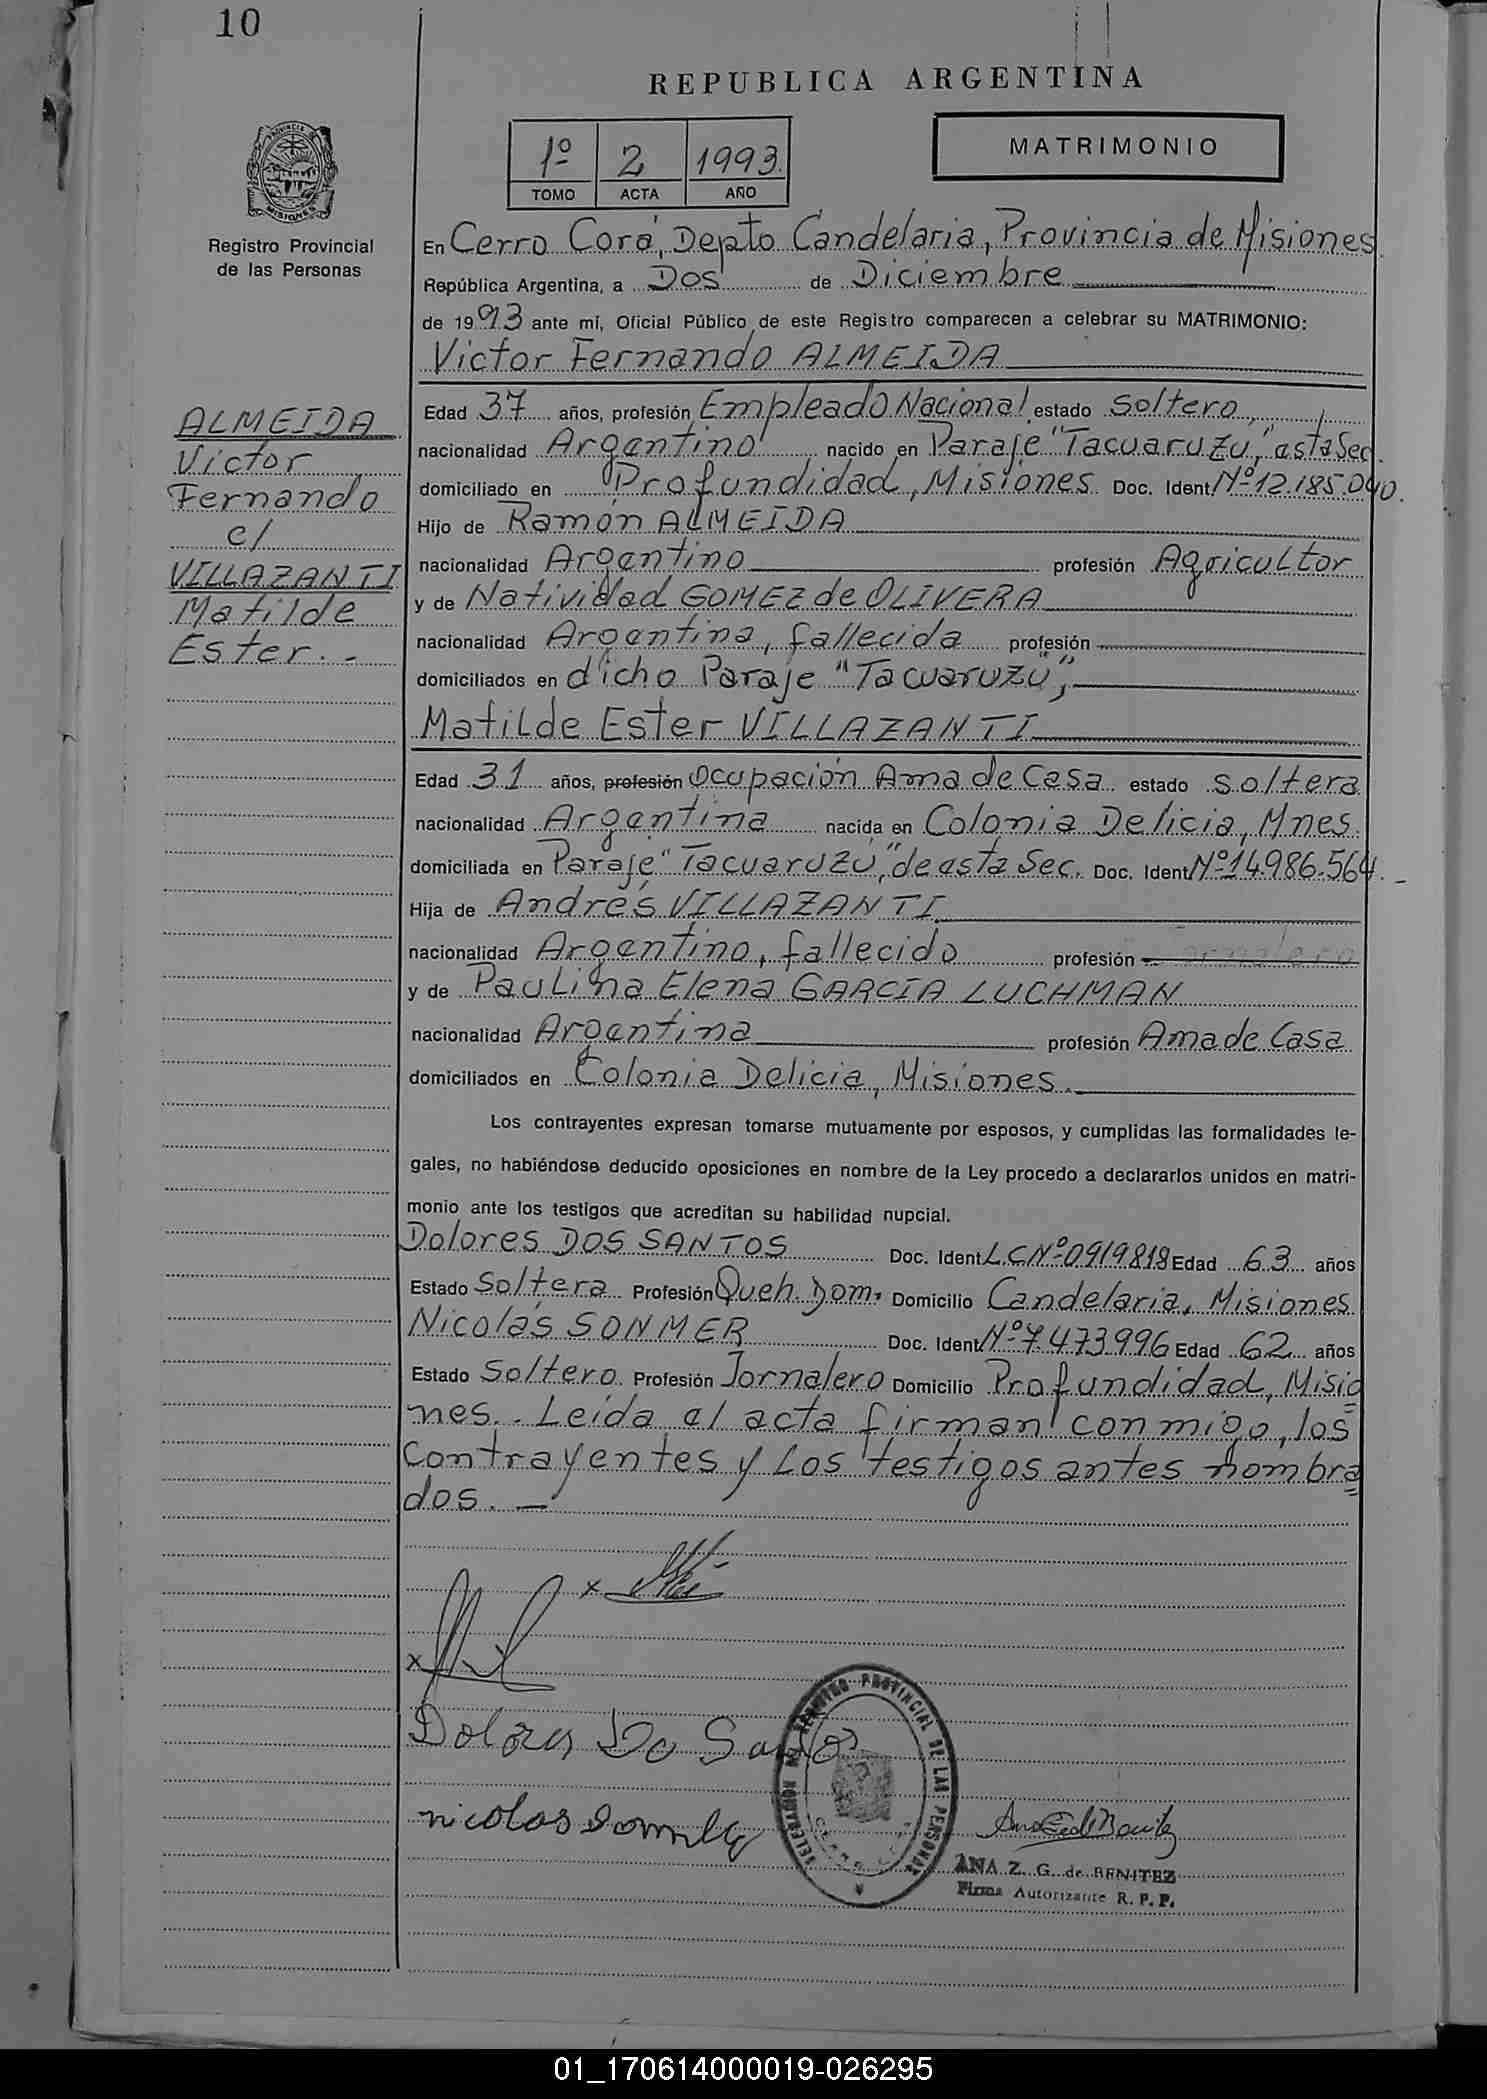 10
REPUBLICA ARGENTINA
1º 2 1993
TOMO ACTA AÑO
MATRIMONIO
MISIONES
Registro Provincial
de las Personas
En Cerro Corá, Depto Candelaria, Provincia de Misiones
República Argentina, a Dos de Diciembre
de 1993 ante mí, Oficial Público de este Registro comparecen a celebrar su MATRIMONIO:
Victor Fernando ALMEIDA
ALMEIDA
Victor
Fernando
c/
VILLAZANTI
Matilde
Ester.-
Edad 37 años, profesión Empleado Nacional estado soltero,
nacionalidad Argentino nacido en Paraje "Tacuaruzú," esta Sec.
domiciliado en Profundidad, Misiones Doc. Ident Nº 12.185.040.
Hijo de Ramón ALMEIDA
nacionalidad Argentino profesión Agricultor
y de Natividad GOMEZ de OLIVERA
nacionalidad Argentina, fallecida profesión
domiciliados en dicho Paraje "Tacuaruzú",
Matilde Ester VILLAZANTI
Edad 31 años, profesión Ocupación Ama de Casa estado soltera
nacionalidad Argentina nacida en Colonia Delicia, Mnes.
domiciliada en Paraje "Tacuaruzú", de esta Sec. Doc. Ident Nº 14.986.564.-
Hija de Andrés VILLAZANTI
nacionalidad Argentino, fallecido profesión
y de Paulina Elena GARCÍA LUCHMAN
nacionalidad Argentina profesión Ama de Casa
domiciliados en Colonia Delicia, Misiones.
Los contrayentes expresan tomarse mutuamente por esposos, y cumplidas las formalidades le-
gales, no habiéndose deducido oposiciones en nombre de la Ley procedo a declararlos unidos en matri-
monio ante los testigos que acreditan su habilidad nupcial.
Dolores DOS SANTOS Doc. Ident L.C Nº 0919818 Edad 63 años
Estado Soltera Profesión Queh. Dom. Domicilio Candelaria, Misiones
Nicolás SONMER Doc. Ident Nº 7.473.996 Edad 62 años
Estado Soltero Profesión Jornalero Domicilio Profundidad, Misio
nes.. Leída el acta firman conmigo, los
contrayentes y los testigos antes nombra
dos. —
x
x
Dolores Do Santos
nicolas
REGISTRO PROVINCIAL DE LAS PERSONAS
ANA Z. G. de BENITEZ
Firma Autorizante R. P. P.
01_170614000019-026295